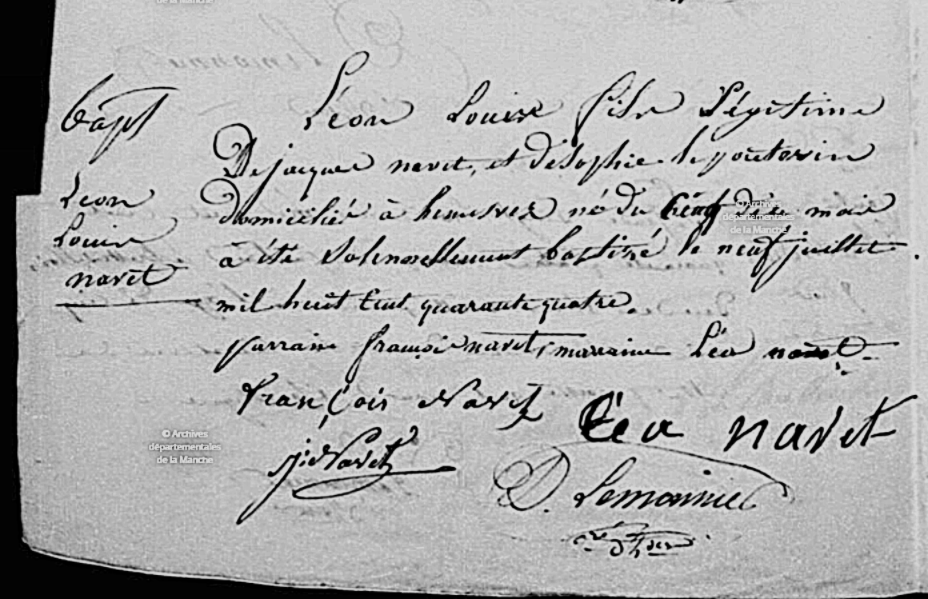 Bapt
Léon
Louis
navet
Léon Louis fils légitime
De jacque navet, et de Sophie lepoutevin
domicilié à hemevez né du cinq de ce mois
à été solennellement baptisé le neuf juillet.
mil huit cent quarante quatre.
parrain françois navet, marraine Léa navet.
François Navet
Léa navet
J. Navet
D. Lemonnier
© Archives
départementales
de la Manche
© Archives
départementales
de la Manche
de la Manche